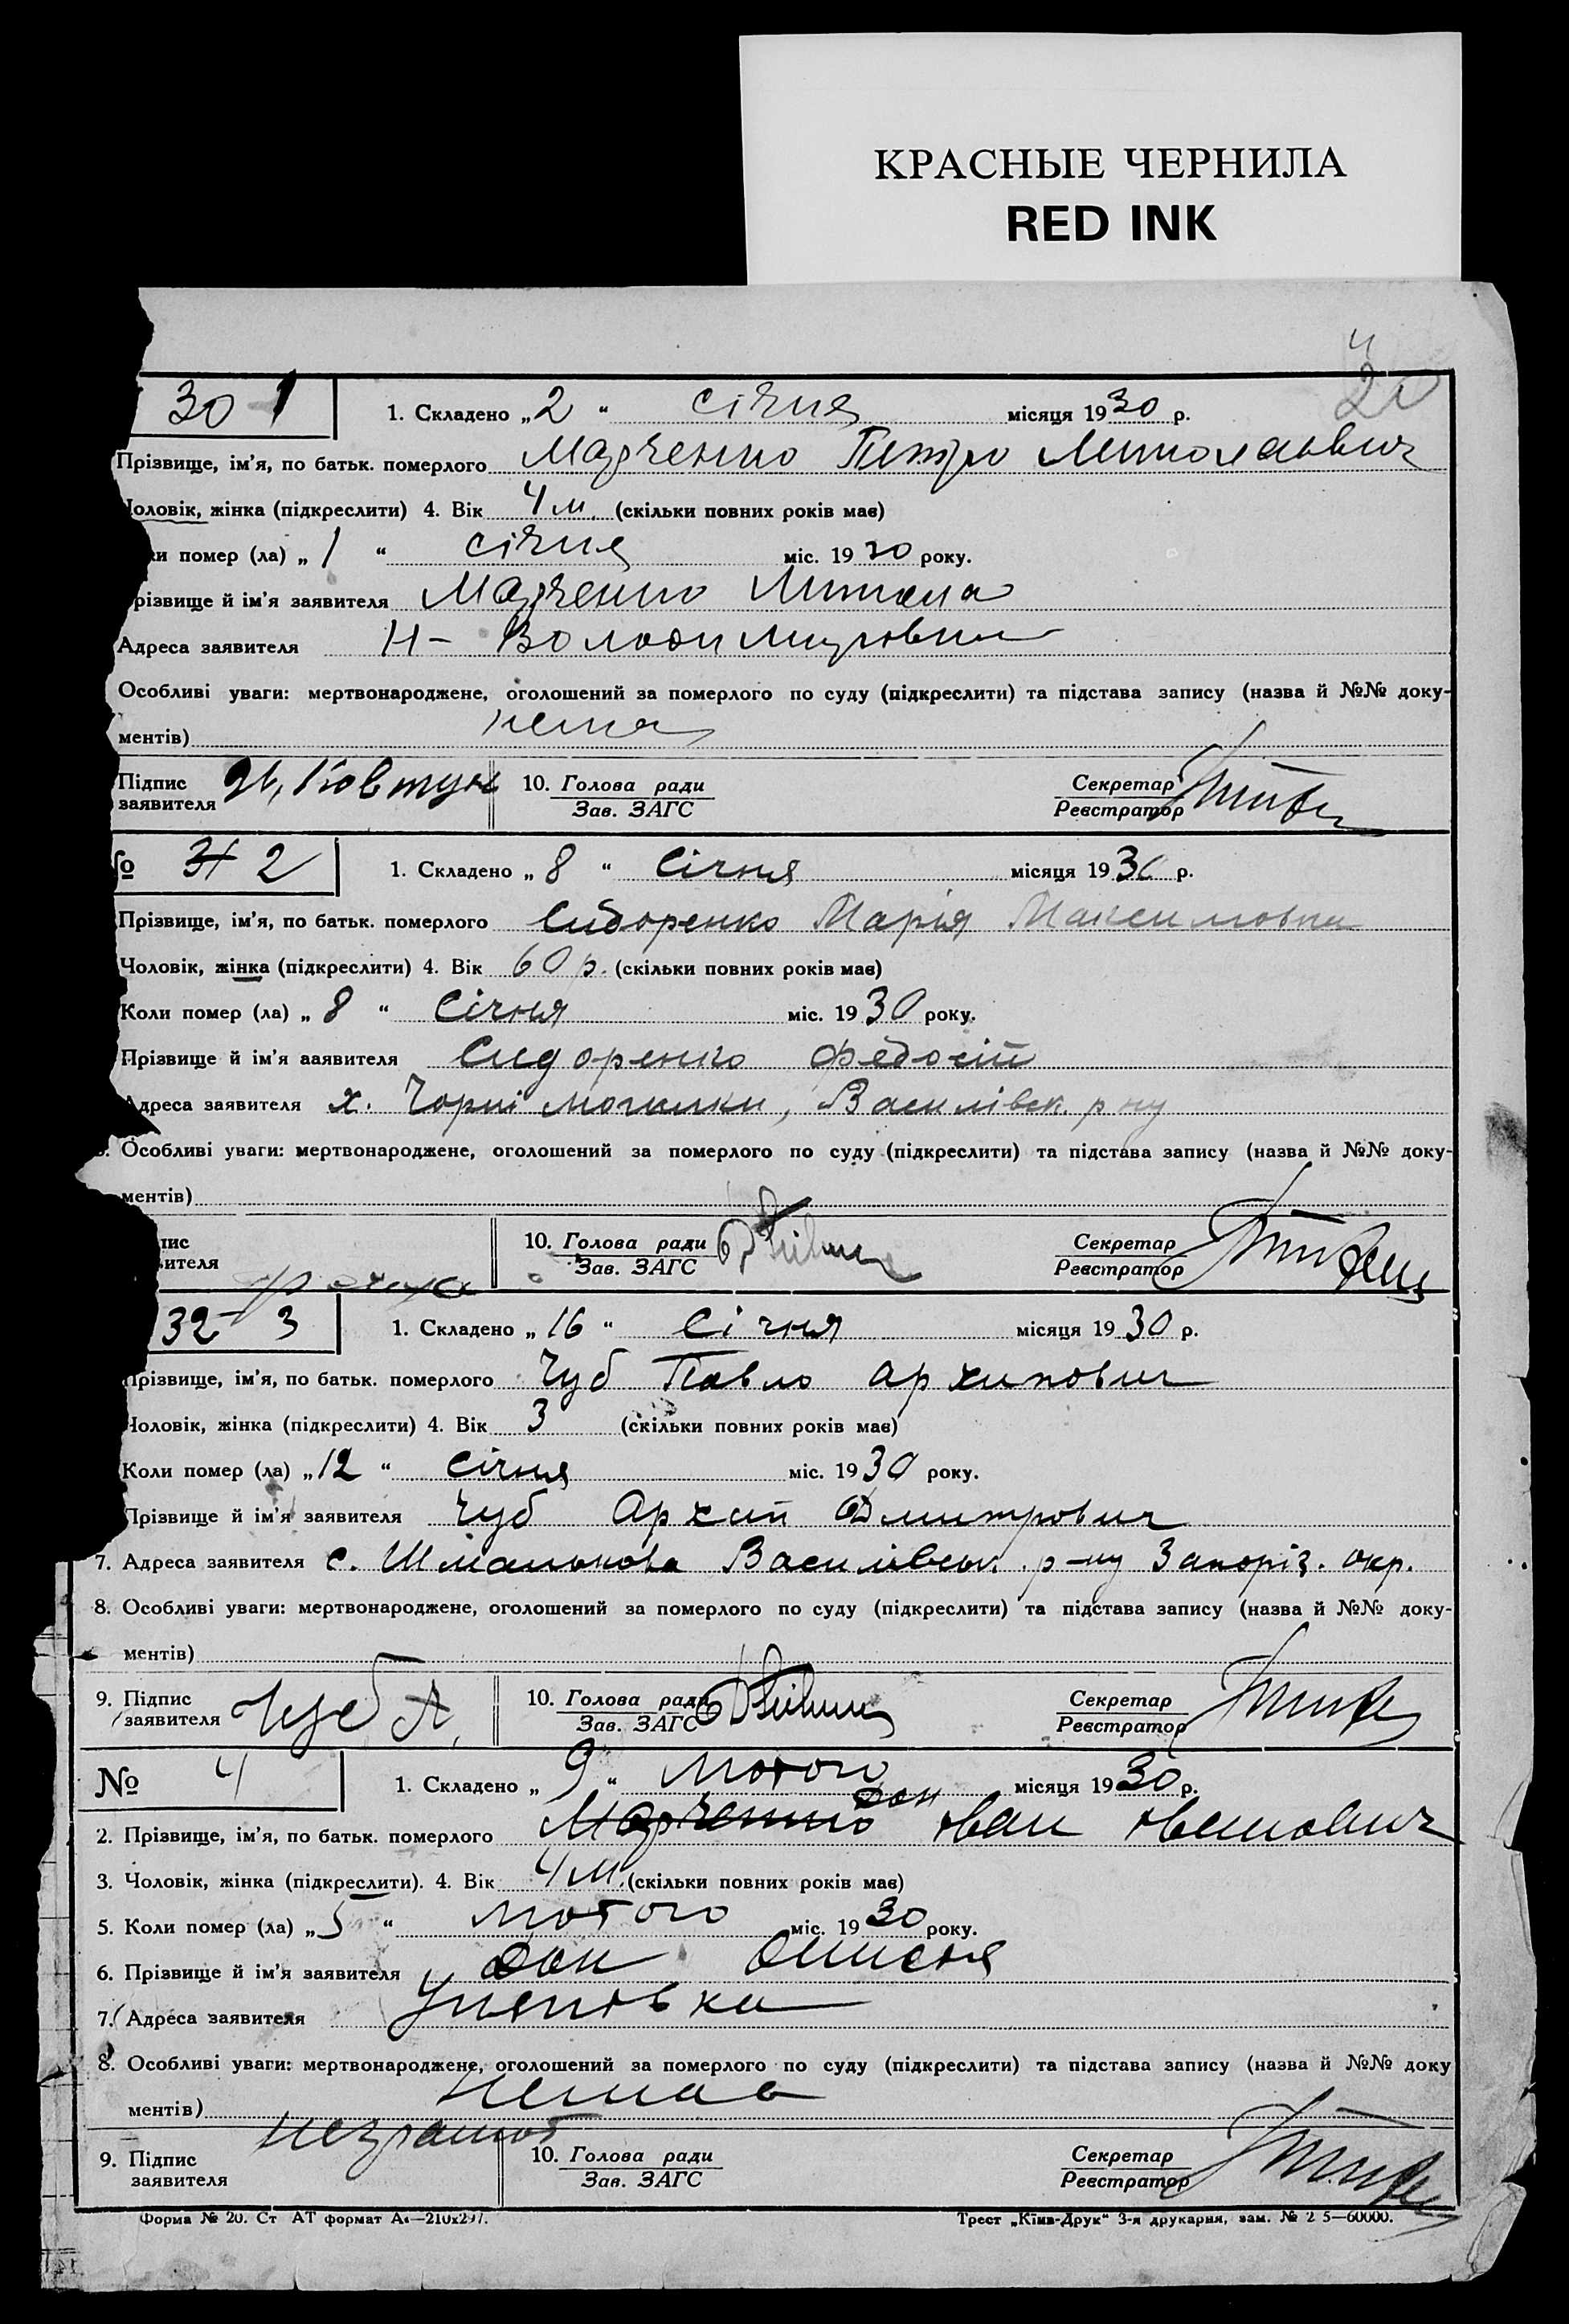 КРАСНЫЕ ЧЕРНИЛА
RED INK
4
30 1
1. Складено „2“ січня місяця 1930 р.
Прізвище, ім’я, по батьк. померлого Марченко Петро Миколаєвич
Чоловік, жінка (підкреслити) 4. Вік 4 м. (скільки повних років має)
ки помер (ла) „1“ січня міс. 1930 року.
різвище й ім’я заявителя Марченко Микола
Адреса заявителя Н- Володимировка
Особливі уваги: мертвонароджене, оголошений за померлого по суду (підкреслити) та підстава запису (назва й №№ доку-
ментів) нема
Підпис заявителя Ковтун 10. Голова ради Зав. ЗАГС Секретар Реєстратор
№ 31 2
1. Складено „8“ Січня місяця 1930 р.
Прізвище, ім’я, по батьк. померлого Сидоренко Марія Максимовна
Чоловік, жінка (підкреслити) 4. Вік 60 р. (скільки повних років має)
Коли помер (ла) „8“ Січня міс. 1930 року.
Прізвище й ім’я заявителя Сидоренко Федосій
Адреса заявителя х. Чорні могилки, Василівск. р ну
Особливі уваги: мертвонароджене, оголошений за померлого по суду (підкреслити) та підстава запису (назва й №№ доку-
ментів)
пис вителя 10. Голова ради Зав. ЗАГС Секретар Реєстратор
32 3
1. Складено „16“ Січня місяця 1930 р.
Прізвище, ім’я, по батьк. померлого Чуб Павло Архипович
Чоловік, жінка (підкреслити) 4. Вік 3 (скільки повних років має)
Коли помер (ла) „12“ Січня міс. 1930 року.
Прізвище й ім’я заявителя Чуб Архип Дмитрович
7. Адреса заявителя с. Шмалькова Василівськ. р-ну Запоріз. окр.
8. Особливі уваги: мертвонароджене, оголошений за померлого по суду (підкреслити) та підстава запису (назва й №№ доку-
ментів)
9. Підпис заявителя Чуб А. 10. Голова ради Зав. ЗАГС Секретар Реєстратор
№ 4
1. Складено „9“ лютого місяця 1930 р.
2. Прізвище, ім’я, по батьк. померлого Марченко Дон Іван Іванович
3. Чоловік, жінка (підкреслити). 4. Вік 4 м. (скільки повних років має)
5. Коли помер (ла) „5“ лютого міс. 1930 року.
6. Прізвище й ім’я заявителя Дон
7. Адреса заявителя
8. Особливі уваги: мертвонароджене, оголошений за померлого по суду (підкреслити) та підстава запису (назва й №№ доку
ментів) немає
9. Підпис заявителя неграмот 10. Голова ради Зав. ЗАГС Секретар Реєстратор
Форма № 20. Ст АТ формат А4—210х297.
Трест „Київ-Друк“ 3-я друкарня, зам. № 2 5—60000.